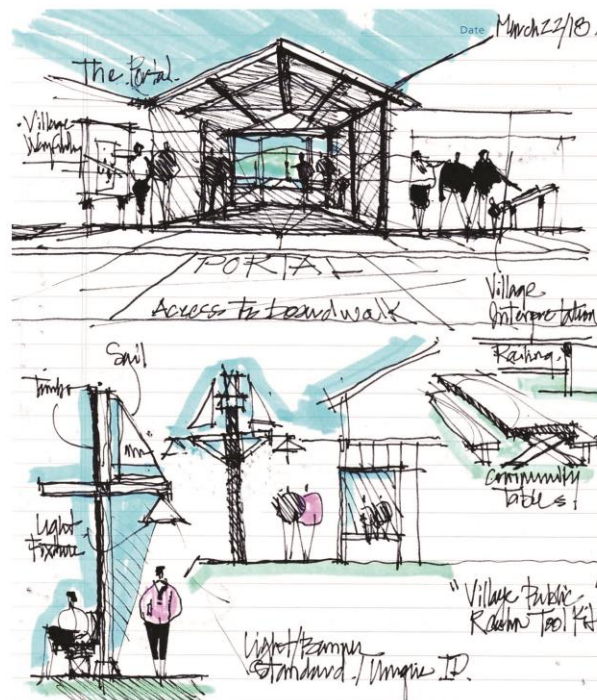 Date March 22/18.
The Portal.
Village
PORTAL
Access to boardwalk
Village
Interpretation
Railing.
Sail
Timber
Light
Fixture
Community
Tables.
"Village Public
Realm Tool Kit"
Light/Banner
Standard / Unique ID.